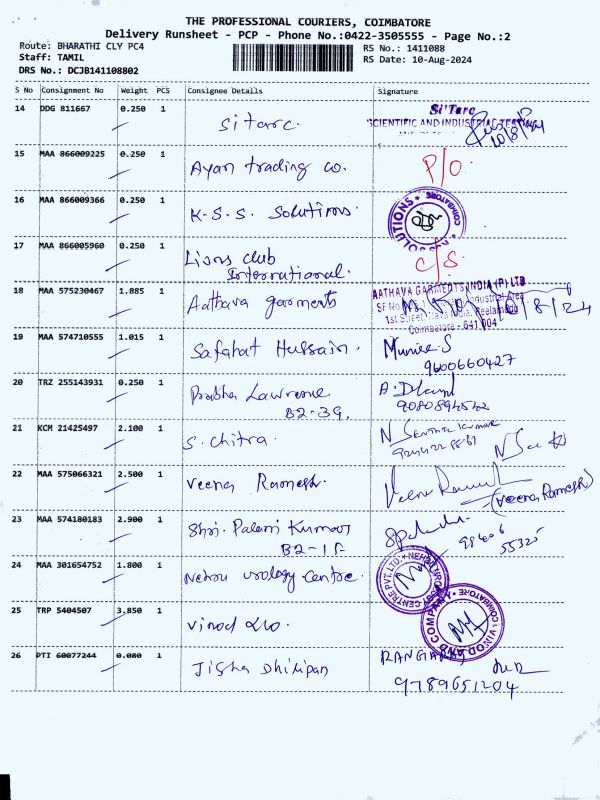 THE PROFESSIONAL COURIERS, COIMBATORE
Delivery Runsheet - PCP - Phone No.:0422-3505555 - Page No.:2
Route: BHARATHI CLY PC4
RS No.: 1411088
Staff: TAMIL
RS Date: 10-Aug-2024
DRS No.: DCJB141108802
S No Consignment No Weight PCS Consignee Details Signature
14 DDG 811667 0.250 1 Sitarc
Si'Tarc
SCIENTIFIC AND INDUSTRIAL TESTING
10/8/24
15 MAA 866009225 0.250 1 Ayan trading co. P/O
16 MAA 866009366 0.250 1 K.S.S. Solutions
SOLUTIONS COIMBATORE
17 MAA 866005960 0.250 1 Lions club
International. C/S
18 MAA 575230467 1.885 1 Aathava garments
AATHAVA GARMENTS INDIA (P) LTD
Industrial Area
1st Street
Coimbatore - 641 004
10/8/24
19 MAA 574710555 1.015 1 Safahat Hussain. Muniee.S
9600660427
20 TRZ 255143931 0.250 1 Prabha Lawrence
B2-39.
21 KCM 21425497 2.100 1 S. Chitra. N Senthil Kumar
22 MAA 575066321 2.500 1 Veena Ramesh. Veena Ramesh
(Veena Ramesh)
23 MAA 574180183 2.900 1 Shri. Palani Kumar
B2-1F
98406
55325
24 MAA 301654752 1.800 1 Nehru urology Centre.
CENTRE PVT. LTD. NEHRU
25 TRP 5404507 3.850 1 Vinod &co.
VINOD AND COMPANY COIMBATORE
26 PTI 60077244 0.080 1 Jisha Dhilipan
9789651204